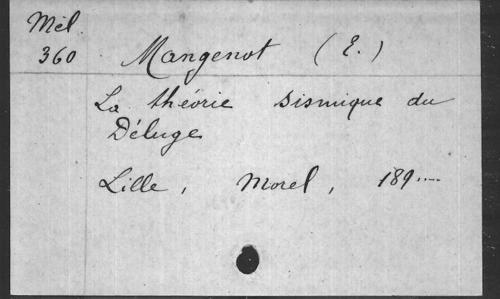 Mél.
360 Mangenot (E.)
La théorie sismique du
Déluge
Lille, Morel, 189....